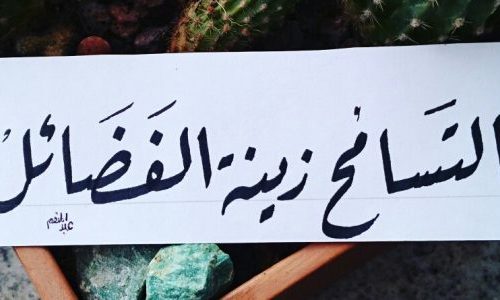 التسامح زينة الفضائل
عبد المنعم